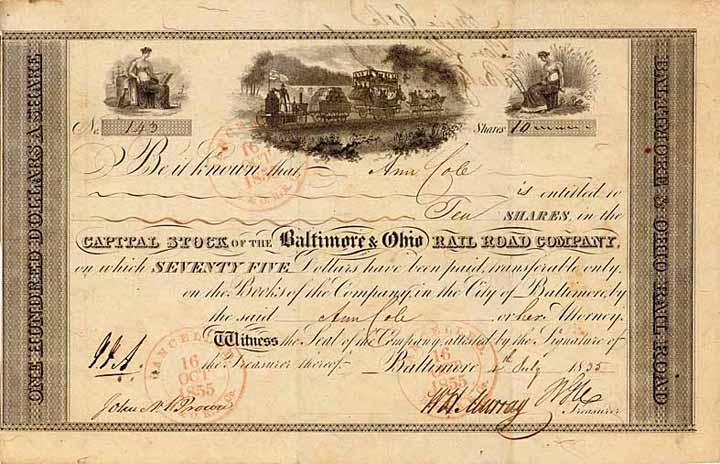 ONE HUNDRED DOLLARS A SHARE
No. 143
Shares 10
Be it known that, Ann Cole
is entitled to
Ten SHARES, in the
CAPITAL STOCK OF THE Baltimore & Ohio RAIL ROAD COMPANY,
on which SEVENTY FIVE Dollars have been paid, transferable only,
on the Books of the Company, in the City of Baltimore, by
the said Ann Cole or her Attorney.
Witness the Seal of the Company, attested by the Signature of
the Treasurer thereof. Baltimore July 1835
Treasurer
W H Murray
BALTIMORE & OHIO RAIL ROAD
CANCELLED
16
OCT
1855
CANCELLED
16
1855